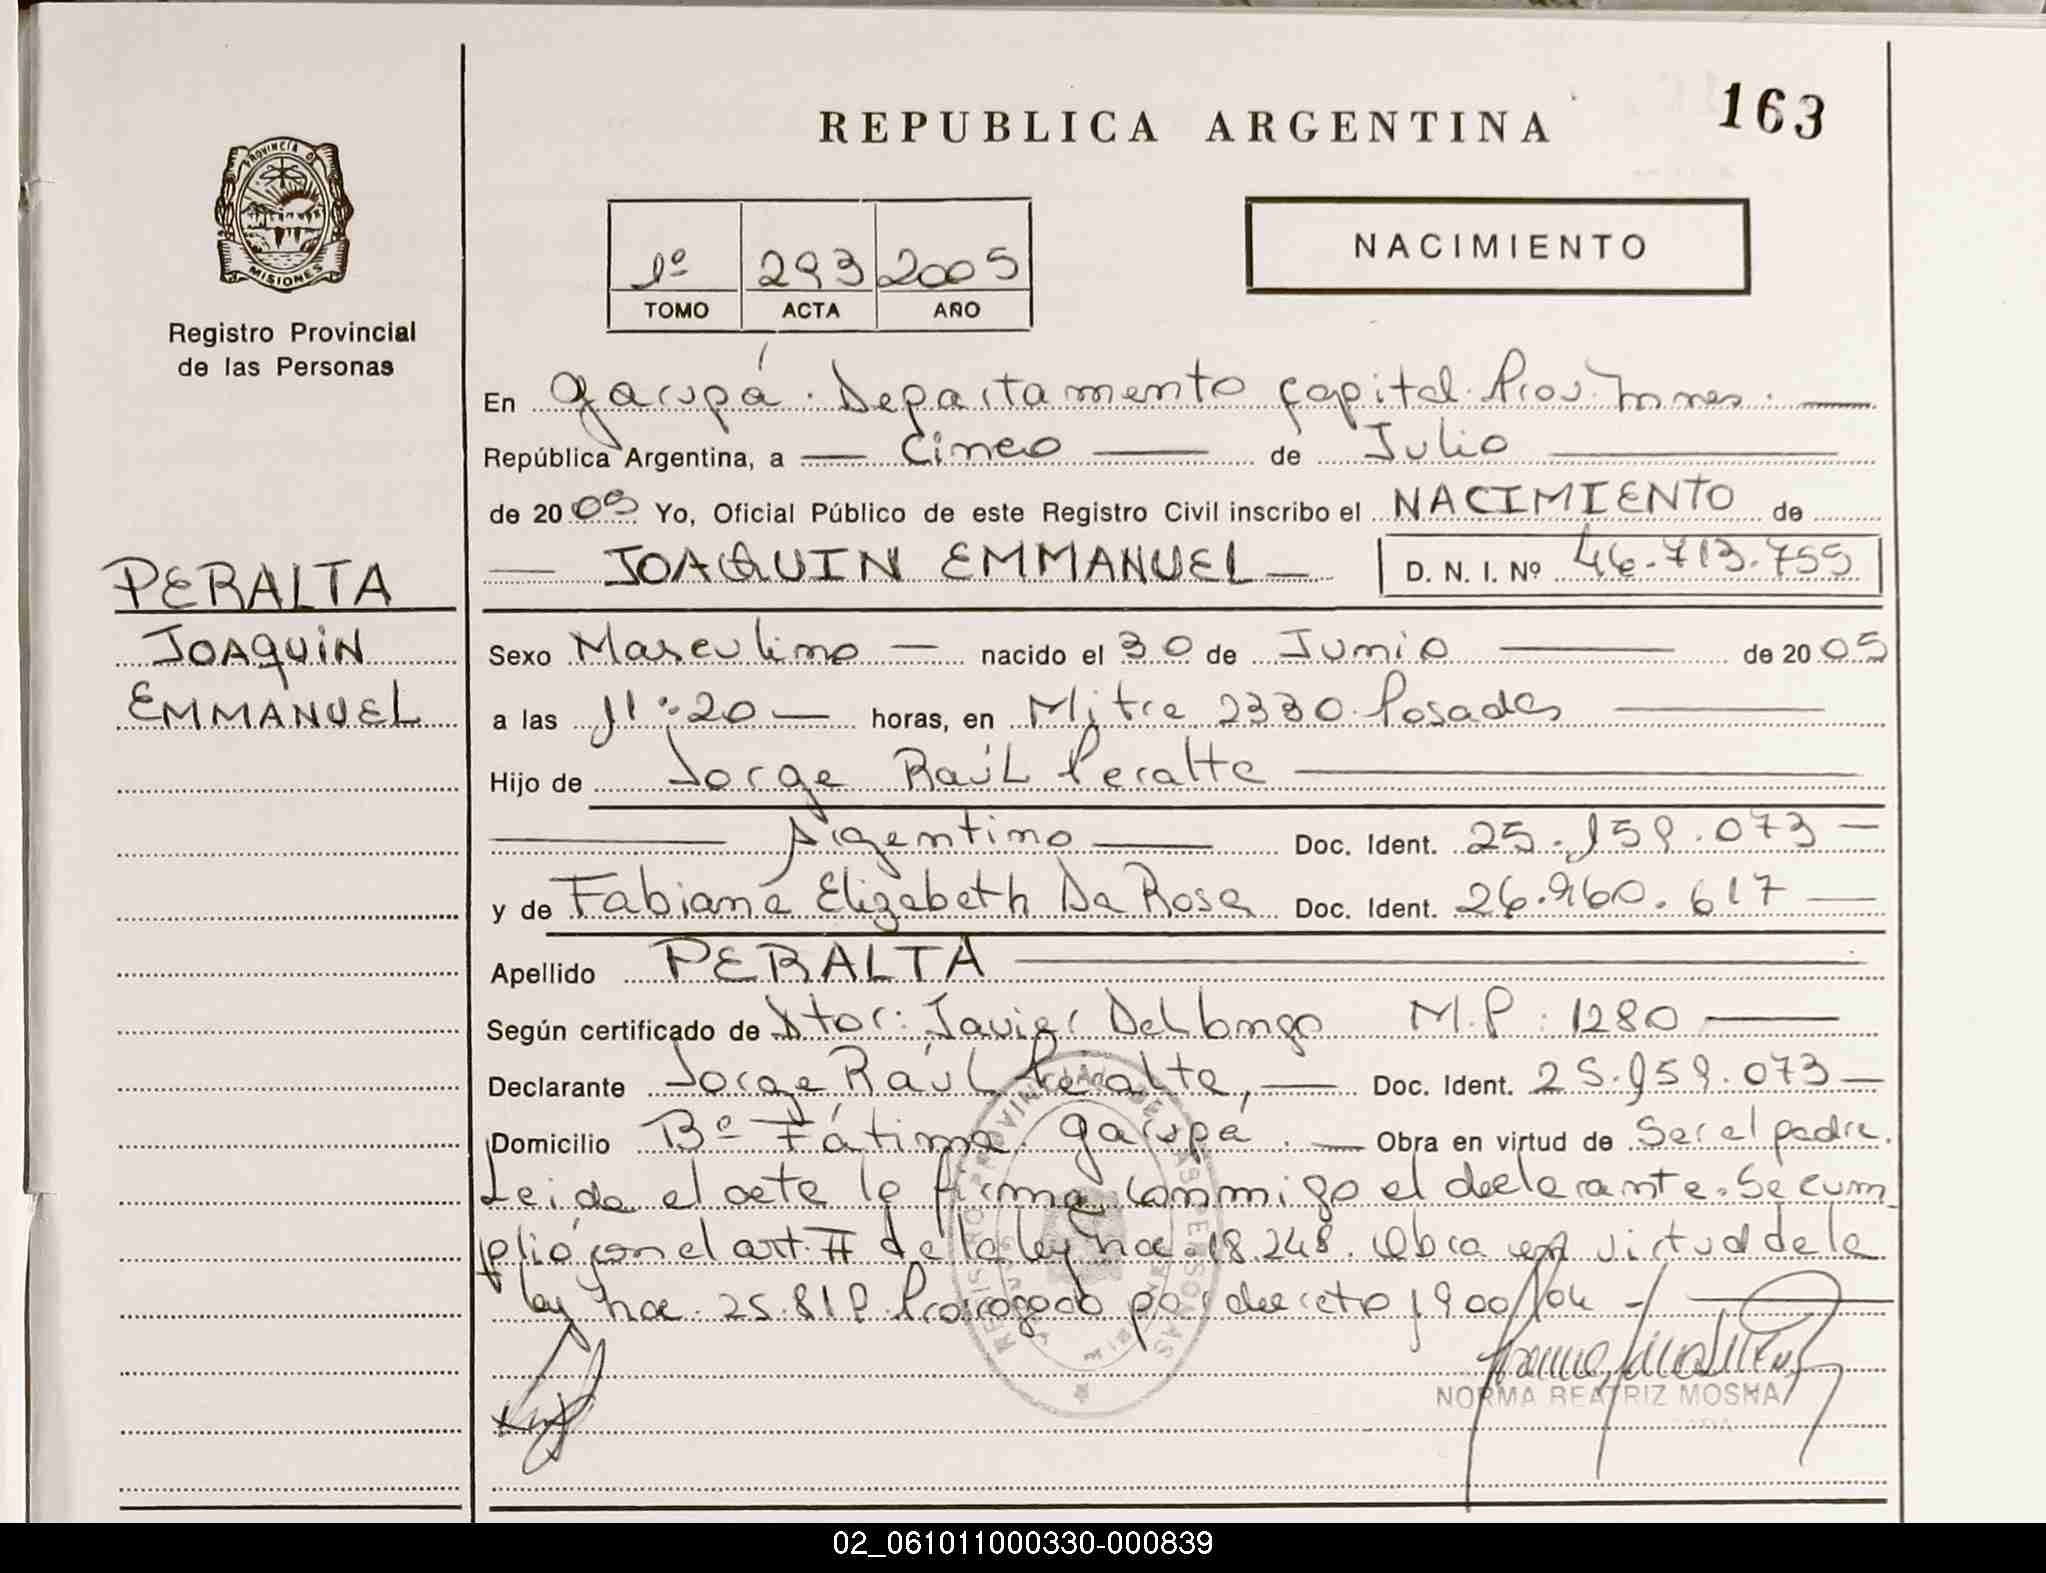 REPUBLICA ARGENTINA
163
PROVINCIA DE
MISIONES
Registro Provincial
de las Personas
1º 293 2005
TOMO ACTA AÑO
NACIMIENTO
En Garupá. Departamento Capital. Prov. Mnes.
República Argentina, a Cinco de Julio
de 2005 Yo, Oficial Público de este Registro Civil inscribo el NACIMIENTO de
JOAQUIN EMMANUEL D. N. I. Nº 46.713.755
PERALTA
JOAQUIN
EMMANUEL
Sexo Masculino nacido el 30 de Junio de 2005
a las 11:20 horas, en Mitre 2330. Posadas
Hijo de Jorge Raúl Peralta
Argentino Doc. Ident. 25.159.073
y de Fabiana Elizabeth Da Rosa Doc. Ident. 26.960.617
Apellido PERALTA
Según certificado de Dtor: Javier Dellongo M.P: 1280
Declarante Jorge Raúl Peralta, Doc. Ident. 25.159.073
Domicilio Bº Fátima. Garupá. Obra en virtud de Ser el padre.
Leida el acta la firma conmigo el declarante. Se cum
plió con el art. II de la ley nac. 18.248. Obra en virtud de la
ley nac. 25.819. Prorrogado por decreto 1900/04
NORMA BEATRIZ MOSKA
02_061011000330-000839